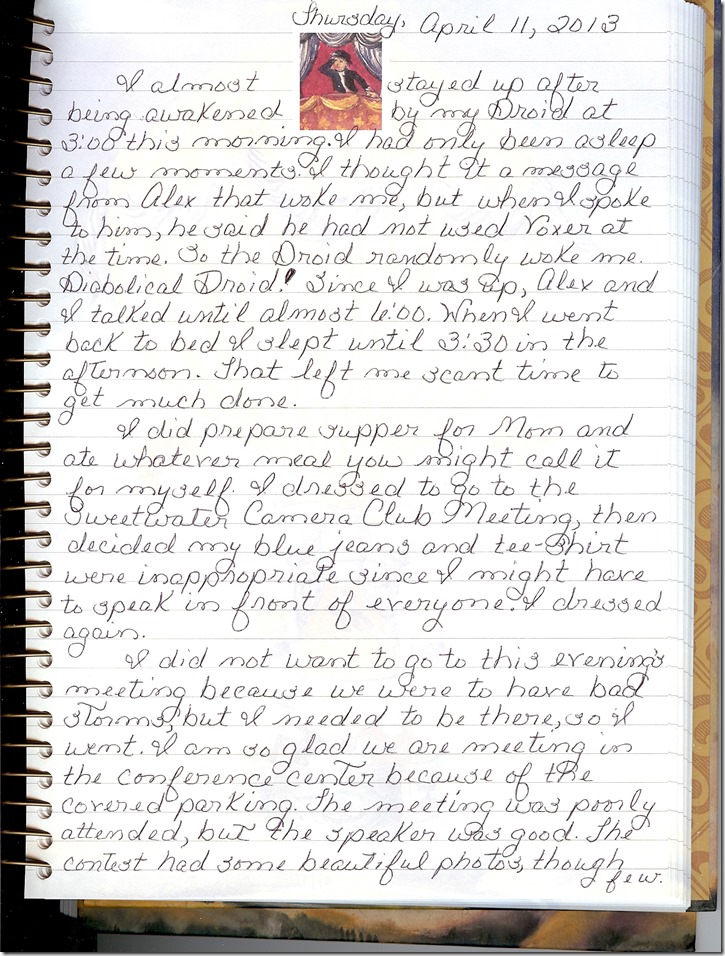 Thursday, April 11, 2013
I almost stayed up after
being awakened by my Droid at
3:00 this morning. I had only been asleep
a few moments. I thought it a message
from Alex that woke me, but when I spoke
to him, he said he had not used Voxer at
the time. So the Droid randomly woke me.
Diabolical Droid! Since I was up, Alex and
I talked until almost 6:00. When I went
back to bed I slept until 3:30 in the
afternoon. That left me scant time to
get much done.
I did prepare supper for Mom and
ate whatever meal you might call it
for myself. I dressed to go to the
Sweetwater Camera Club Meeting, then
decided my blue jeans and tee-shirt
were inappropriate since I might have
to speak in front of everyone. I dressed
again.
I did not want to go to this evening's
meeting because we were to have bad
storms, but I needed to be there, so I
went. I am so glad we are meeting in
the conference center because of the
covered parking. The meeting was poorly
attended, but the speaker was good. The
contest had some beautiful photos, though
few.